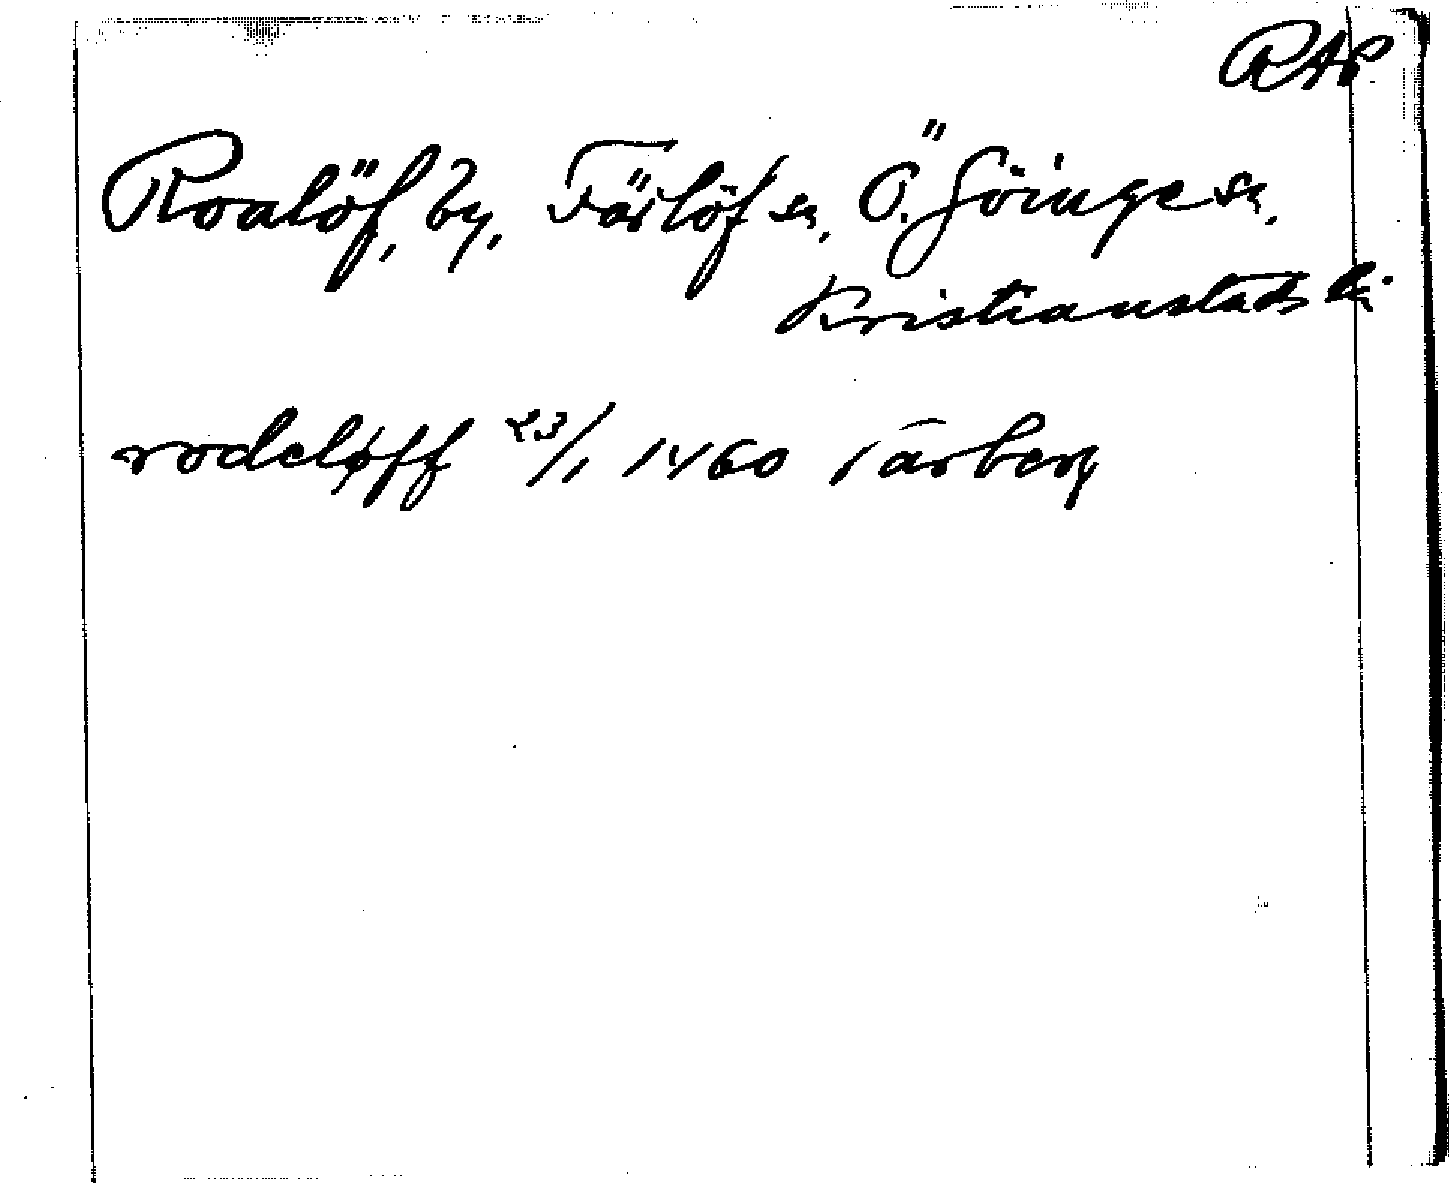 RAP
Roalöf, by, Färlöf sn, Ö. Göinge sn,
Kristianstads l.
rodeløff 23/1 1460 Vårberg